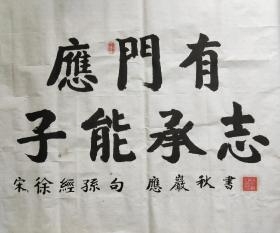 有門應
志承能子
宋徐經孫句 應嚴秋書